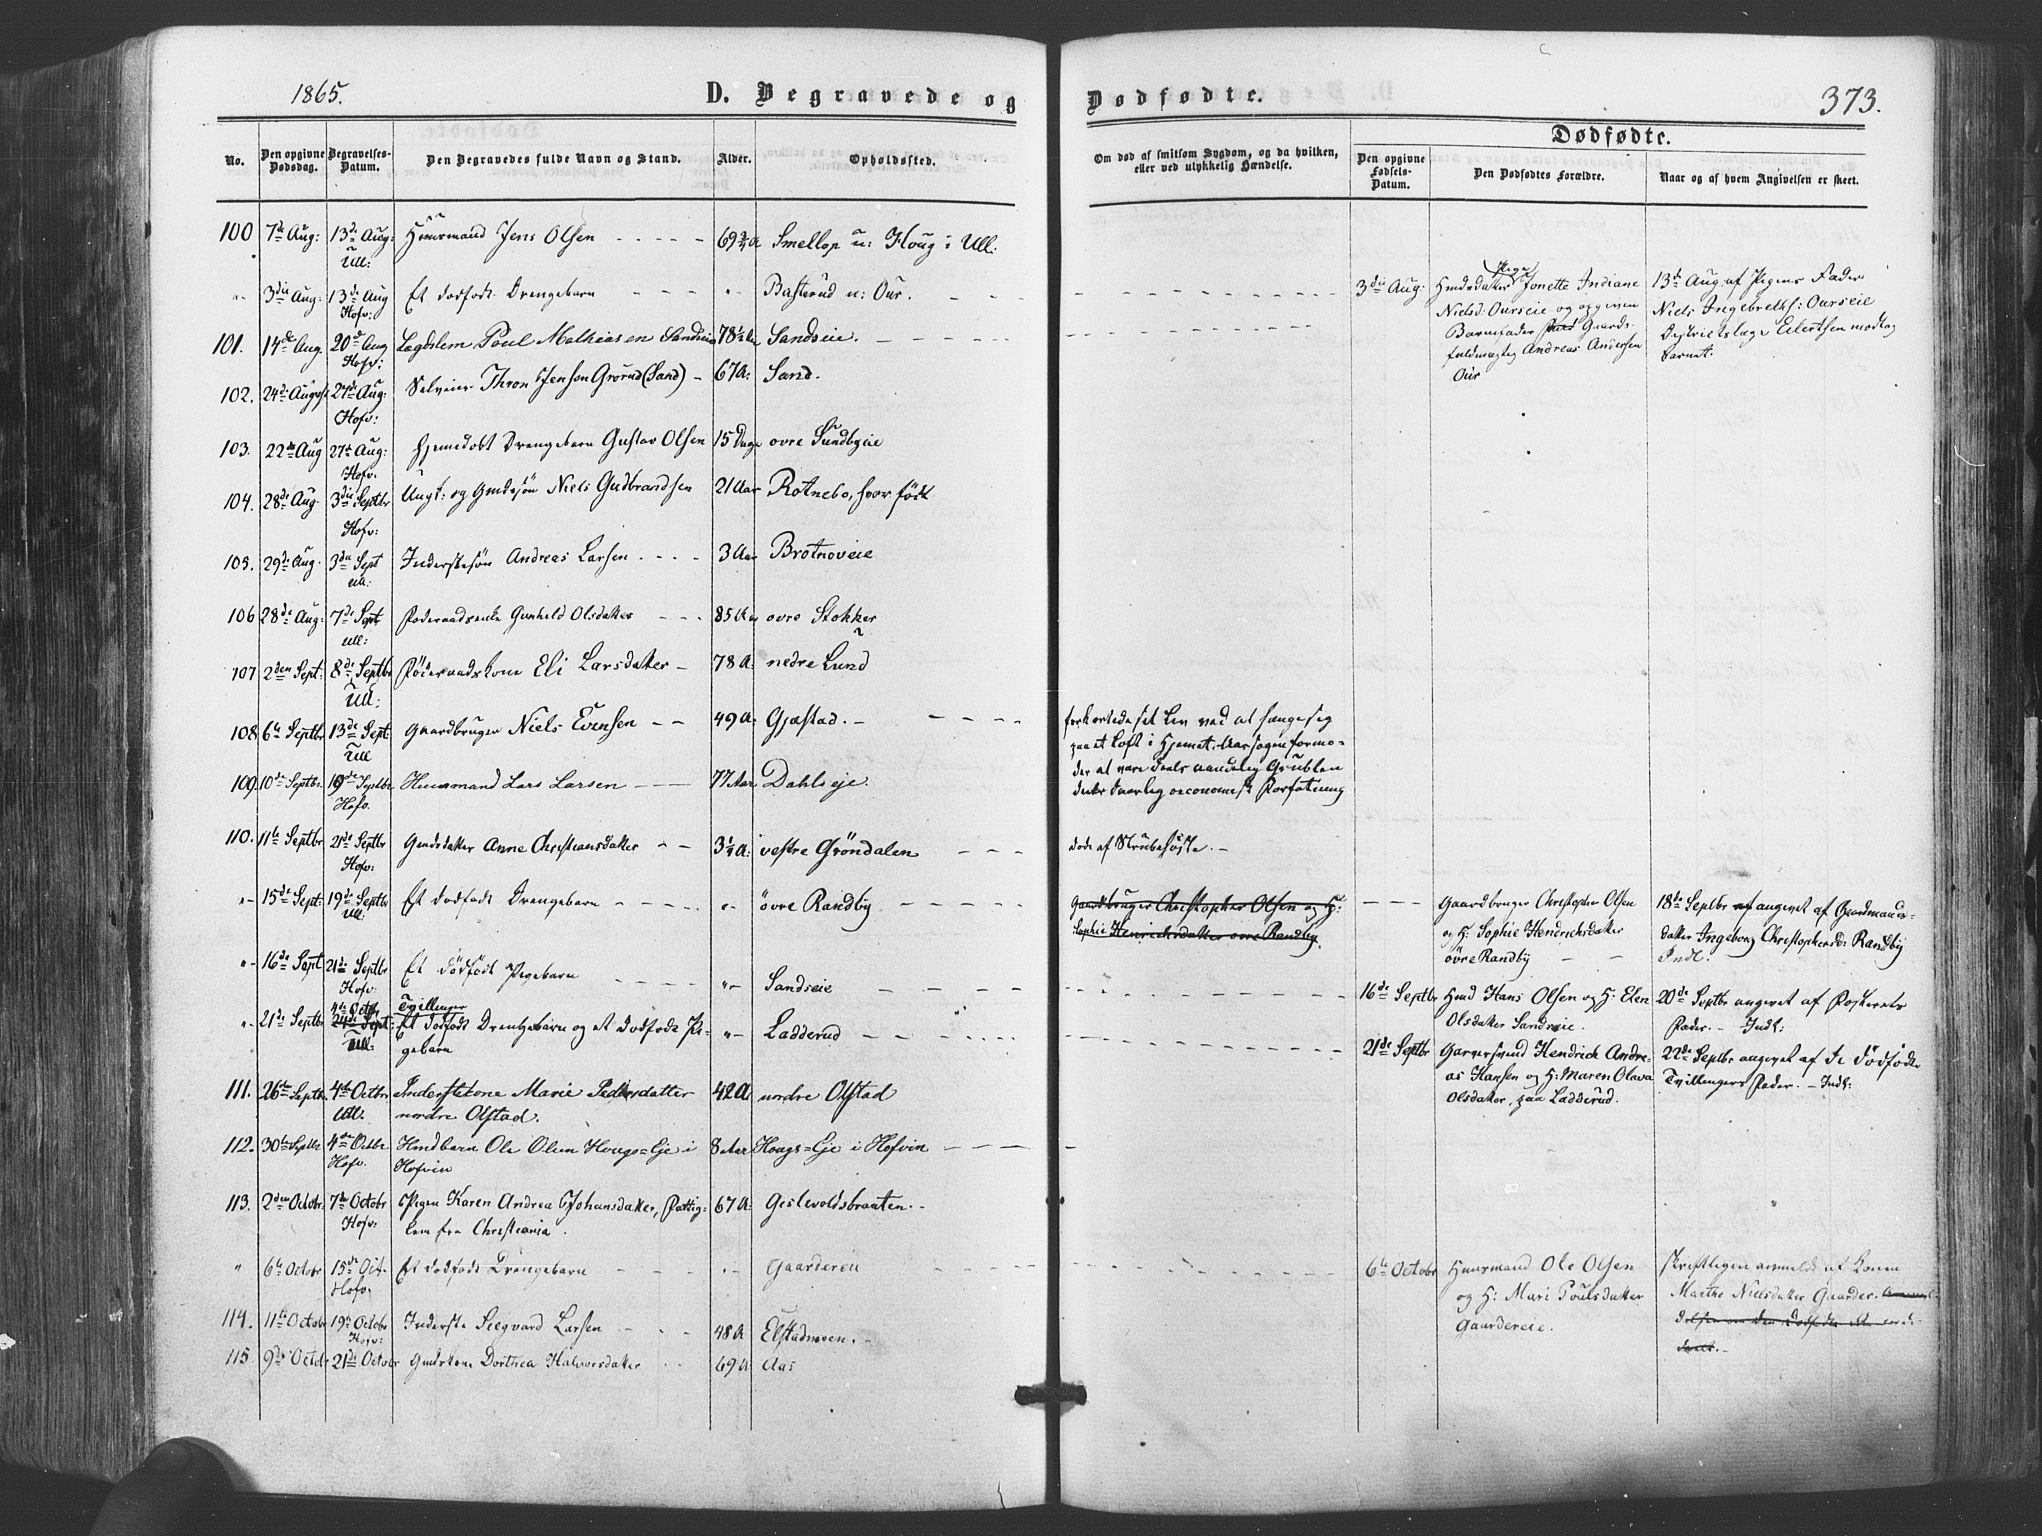 1865.
D. Begravede og
Dødfødte.
373.
Dødfødte.
No.
Den opgivne Dødsdag.
Begravelses-Datum.
Den Begravedes fulde Navn og Stand.
Alder.
Opholdssted.
Om død af smitsom Sygdom, og da hvilken,
eller ved ulykkelig Hændelse.
Den opgivne Fødsels-Datum.
Den Dødfødtes Forældre.
Naar og af hvem Angivelsen er skeet.
100 7de Aug: 13de Aug: Ull: Huusmand Jens Olsen 69 3/4 A Smellop u: Houg i Ull:
3die Aug: 13de Aug Hofv: Et dødfødt Drengebarn Basterud u: Our.
3die Aug: Jonette Indiane
Nielsd: Ourseie og opgiven
Barnefader Gaards-
fuldmægtig Andreas Andersen
Our
13de Aug af Pigens Fader
Niels Ingebreths: Ourseie
Districtslæge Eilertsen modtog
Barnet.
101. 14de Aug. 20de Aug Hofv: Lægdslem Poul Mathiasen Sandseie 78 1/2 Aar Sandseie.
102. 24de August 27de Aug: Hofv: Selveier Thron Jensen Grorud (Sand) 67 A: Sand.
103. 22de Aug 27de Aug: Hofv. Hjemmedøbt Drengebarn Gustav Olsen 15 Dage øvre Sundbyeie
104. 28de Aug 3die Septbr Hofv: Ungk: og Gmdssøn Niels Gudbrandsen 21 Aar Rotnebo, hvor født
105. 29de Aug. 3die Sept Ull: Inderstesøn Andreas Larsen 3 Aar Brotnoveie
106 28de Aug: 7de Sept Ull: Føderaadsenke Gunhild Olsdatter 85 Aar øvre Stokker
107 2den Sept: 8de Septbr Ull: Føderaadskone Eli Larsdatter 78 A: nedre Lund
108 6te Septbr 13de Sept Ull Gaardbruger Niels Evensen 49 A: Gjæstad.
forkortede sit Liv ved at hænge sig
paa et Loft i Hjemmet. Aarsagen formo-
des at være deels aandelig Grublen
deels daarlig oeconomisk Forfatning
109. 10de Septbr. Septbr Hofv. Huusmand Lars Larsen 77 Aar Dahlseje.
110. 11te Septbr 21de Septbr Hofv: Gmdsdatter Anne Christiansdatter 3 1/4 A: vestre Gröndalen
døde af Strubehoste.
15de Sept: 19de Septbr Ull: Et dødfødt Drengebarn øvre Randby
Gaardbruger Christopher Olsen og H:
Sophie Henrichsdatter øvre Randby.
Gaardbruger Christopher Olsen
og H: Sophie Hendricksdatter
øvre Randby
18de Septbr angivet af Gaardmands-
datter Ingeborg Christophersd: Randby
Indl.
16de Sept 21de Septbr Hofv. Et dødfødt Pigebarn Sandseie
16de Septbr Hmd Hans Olsen og H: Elen
Olsdatter Sandseie.
20de Septbr angivet af Fosterets
Fader. Indl:
21de Septbr 4de Octbr 24de Sept: Ull: Tvillinger
Et dødfødt Drengebarn og et dødfødt Pi-
gebarn Ladderud
21de Septbr Garversvend Hendrick Andre-
as Hansen og H: Maren Olava
Olsdatter, paa Ladderud.
22de Septbr angivet af de dødfødte
Tvillingers Fader. Indl:
111. 26te Septbr. 4de Octbr Ull: Inderstekone Marie Pedersdatter
nordre Olstad. 42 A nordre Olstad
112. 30te Septbr 4de Octbr Hofv. Hmdbarn Ole Olsen Hougs=Eje i
Hofvin 8 Aar Hougs=Eje i Hofvin
113. 2den Octobr. 7de Octobr Hofv: Pigen Karen Andrea Johansdatter, Fattig-
lem fra Christiania. 67 A: Gislevoldsbraaten.
6te Octobr 15de Oct. Hofv: Et dødfødt Drengebarn Gaardereie
6te Octobr Huusmand Ole Olsen
og H: Mari Poulsdatter
Gaardereie.
Skriftligen anmeldt af Konen
Marthe Nielsdatter Gaarder.
114. 11te Octobr 19de Octobr Hofv: Inderste Siegvard Larsen 48 A Elstadmoen.
115. 9de Octobr 21de Octobr Gmdskone Dorthea Halvorsdatter 69 A Aas